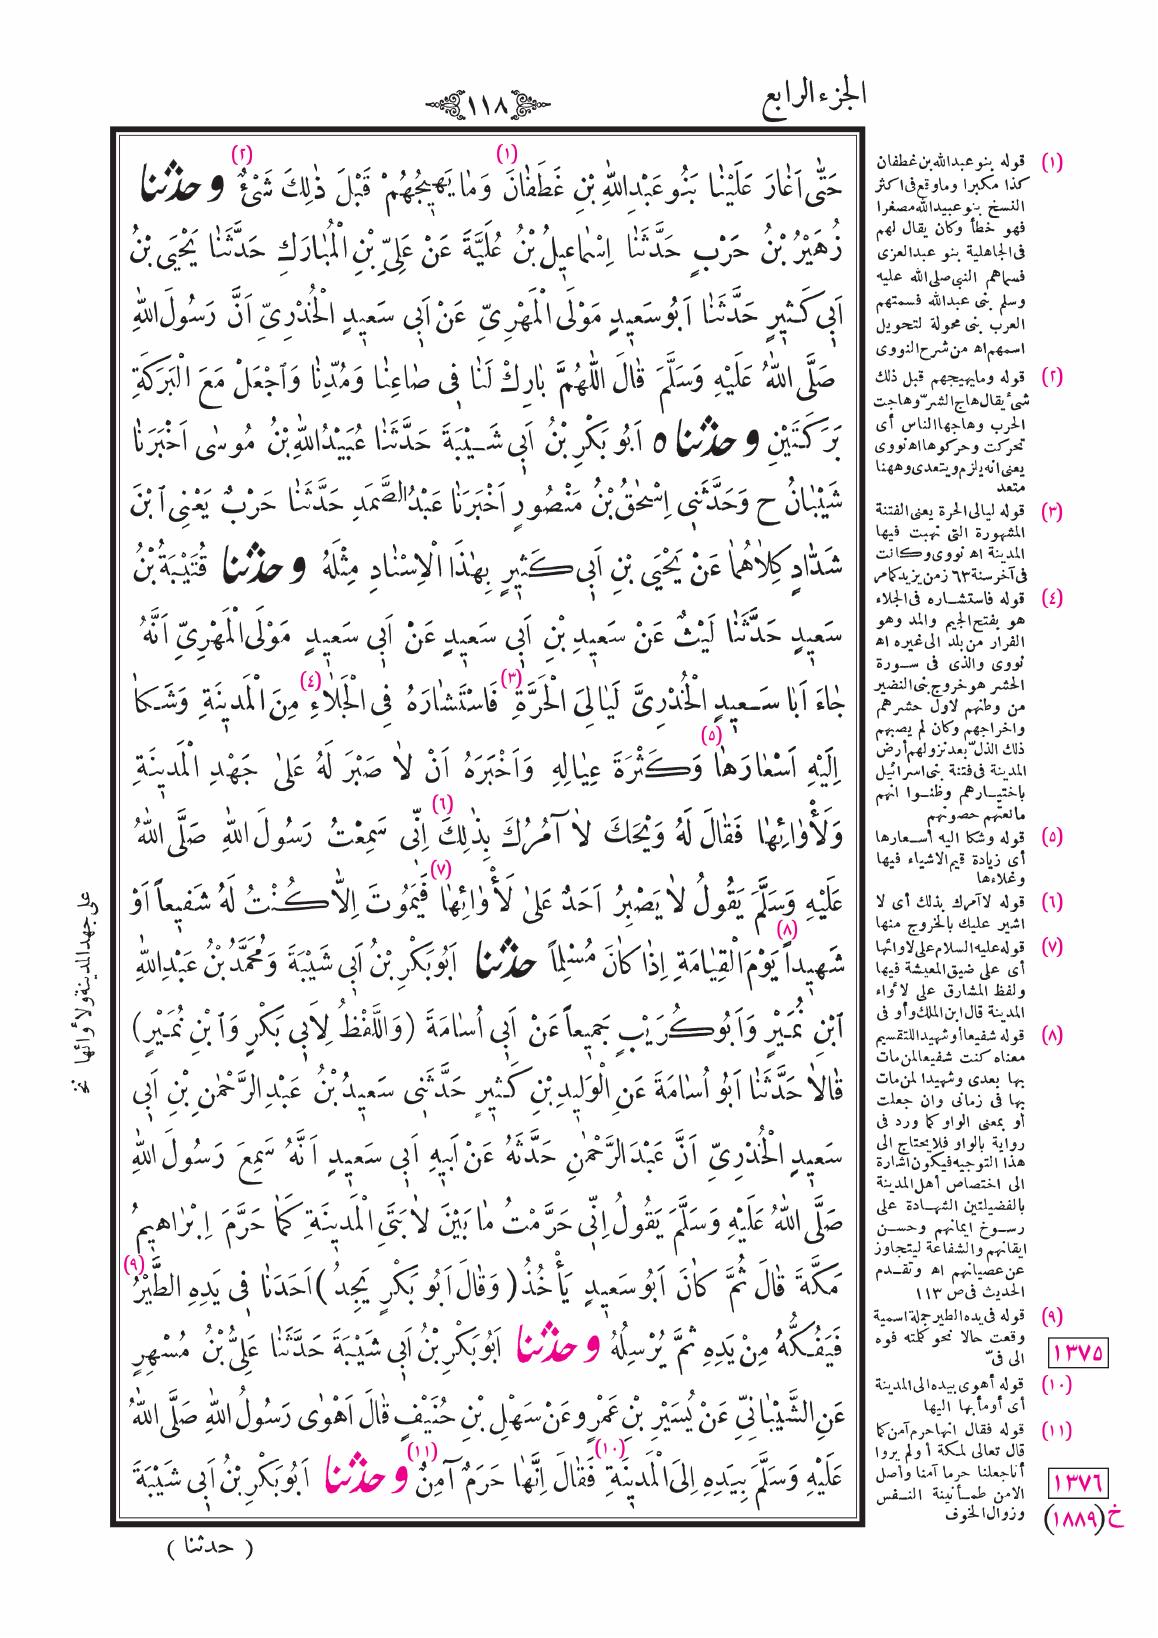 الجزء الرابع
١١٨
حَتّٰى اَغٰارَ عَلَيْنٰا بَنُو عَبْدِاللّٰهِ بْنِ غَطَفٰانَ (١) وَمٰا يَهيجُهُمْ قَبْلَ ذٰلِكَ شَىْءٌ (٢) وحدثنا
زُهَيْرُ بْنُ حَرْبٍ حَدَّثَنٰا اِسْمٰاعيلُ بْنُ عُلَيَّةَ عَنْ عَلِىِّ بْنِ الْمُبٰارَكِ حَدَّثَنٰا يَحْيَى بْنُ
اَبى كَثيرٍ حَدَّثَنٰا اَبُوسَعيدٍ مَوْلَى الْمَهْرِىِّ عَنْ اَبى سَعيدٍ الْخُدْرِىِّ اَنَّ رَسُولَ اللّٰهِ
صَلَّى اللّٰهُ عَلَيْهِ وَسَلَّمَ قٰالَ اللّٰهُمَّ بٰارِكْ لَنٰا فى صٰاعِنٰا وَمُدِّنٰا وَاجْعَلْ مَعَ الْبَرَكَةِ
بَرَكَتَيْنِ وحدثناه اَبُو بَكْرِ بْنُ اَبى شَيْبَةَ حَدَّثَنٰا عُبَيْدُاللّٰهِ بْنُ مُوسٰى اَخْبَرَنٰا
شَيْبٰانُ ح وَحَدَّثَنى اِسْحٰقُ بْنُ مَنْصُورٍ اَخْبَرَنٰا عَبْدُالصَّمَدِ حَدَّثَنٰا حَرْبٌ يَعْنِى ابْنَ
شَدّٰادٍ كِلاٰهُمٰا عَنْ يَحْيَى بْنِ اَبى كَثيرٍ بِهٰذَا الْاِسْنٰادِ مِثْلَهُ وحدثنا قُتَيْبَةُ بْنُ
سَعيدٍ حَدَّثَنٰا لَيْثٌ عَنْ سَعيدِ بْنِ اَبى سَعيدٍ عَنْ اَبى سَعيدٍ مَوْلَى الْمَهْرِىِّ اَنَّهُ
جٰاءَ اَبٰا سَعيدٍ الْخُدْرِىَّ لَيٰالِىَ الْحَرَّةِ (٣) فَاسْتَشٰارَهُ فِى الْجَلاٰءِ (٤) مِنَ الْمَدينَةِ وَشَكٰا
اِلَيْهِ اَسْعٰارَهٰا (٥) وَكَثْرَةَ عِيٰالِهِ وَاَخْبَرَهُ اَنْ لاٰ صَبْرَ لَهُ عَلىٰ جَهْدِ الْمَدينَةِ
وَلَأْوٰائِهٰا فَقٰالَ لَهُ وَيْحَكَ لاٰ آمُرُكَ بِذٰلِكَ (٦) اِنّى سَمِعْتُ رَسُولَ اللّٰهِ صَلَّى اللّٰهُ
عَلَيْهِ وَسَلَّمَ يَقُولُ لاٰ يَصْبِرُ اَحَدٌ عَلىٰ لَأْوٰائِهٰا (٧) فَيَمُوتَ اِلاّٰ كُنْتُ لَهُ شَفيعاً اَوْ
شَهيداً (٨) يَوْمَ الْقِيٰامَةِ اِذٰا كٰانَ مُسْلِماً حدثنا اَبُوبَكْرِ بْنُ اَبى شَيْبَةَ وَمُحَمَّدُ بْنُ عَبْدِاللّٰهِ
ابْنِ نُمَيْرٍ وَاَبُوكُرَيْبٍ جَميعاً عَنْ اَبى اُسٰامَةَ (وَاللَّفْظُ لِاَبى بَكْرٍ وَابْنِ نُمَيْرٍ)
قٰالاٰ حَدَّثَنٰا اَبُو اُسٰامَةَ عَنِ الْوَليدِ بْنِ كَثيرٍ حَدَّثَنى سَعيدُ بْنُ عَبْدِالرَّحْمٰنِ بْنِ اَبى
سَعيدٍ الْخُدْرِىِّ اَنَّ عَبْدَالرَّحْمٰنِ حَدَّثَهُ عَنْ اَبيهِ اَبى سَعيدٍ اَنَّهُ سَمِعَ رَسُولَ اللّٰهِ
صَلَّى اللّٰهُ عَلَيْهِ وَسَلَّمَ يَقُولُ اِنّى حَرَّمْتُ مٰا بَيْنَ لاٰبَتَىِ الْمَدينَةِ كَمٰا حَرَّمَ اِبْرٰاهيمُ
مَكَّةَ قٰالَ ثُمَّ كٰانَ اَبُو سَعيدٍ يَأْخُذُ (وَقٰالَ اَبُو بَكْرٍ يَجِدُ) اَحَدَنٰا فى يَدِهِ الطَّيْرُ (٩)
فَيَفُكُّهُ مِنْ يَدِهِ ثُمَّ يُرْسِلُهُ وحدثنا اَبُوبَكْرِ بْنُ اَبى شَيْبَةَ حَدَّثَنٰا عَلِىُّ بْنُ مُسْهِرٍ
عَنِ الشَّيْبٰانِىِّ عَنْ يُسَيْرِ بْنِ عَمْرٍو عَنْ سَهْلِ بْنِ حُنَيْفٍ قٰالَ اَهْوٰى رَسُولُ اللّٰهِ صَلَّى اللّٰهُ
عَلَيْهِ وَسَلَّمَ بِيَدِهِ اِلَى الْمَدينَةِ (١٠) فَقٰالَ اِنَّهٰا حَرَمٌ آمِنٌ (١١) وحدثنا اَبُوبَكْرِ بْنُ اَبى شَيْبَةَ
( حدثنا )
(١) قوله بنو عبدالله بن غطفان
كذا مكبرا وماوقع فى اكثر
النسخ بنو عبيدالله مصغرا
فهو خطأ وكان يقال لهم
فى الجاهلية بنو عبدالعزى
فسماهم النبى صلى الله عليه
وسلم بنى عبدالله فسمتهم
العرب بنى محولة لتحويل
اسمهم اه من شرح النووى
(٢) قوله ومايهيجهم قبل ذلك
شئ يقال هاج الشرّ وهاجت
الحرب وهاجها الناس أى
تحركت وحركوها اه نووى
يعنى انه يلزم ويتعدى وههنا
متعد
(٣) قوله ليالى الحرة يعنى الفتنة
المشهورة التى نهبت فيها
المدينة اه نووى وكانت
فى آخر سنة ٦٣ زمن يزيد كمامر
(٤) قوله فاستشاره فى الجلاء
هو بفتح الجيم والمد وهو
الفرار من بلد الى غيره اه
نووى والذى فى سورة
الحشر هو خروج بنى النضير
من وطنهم لاول حشرهم
واخراجهم وكان لم يصبهم
ذلك الذلّ بعد نزولهم أرض
المدينة فى فتنة بنى اسرائيل
باختيارهم وظنوا انهم
مانعتهم حصونهم
(٥) قوله وشكا اليه أسعارها
أى زيادة قيم الاشياء فيها
وغلاءها
(٦) قوله لا آمرك بذلك أى لا
اشير عليك بالخروج منها
(٧) قوله عليه السلام على لاوائها
أى على ضيق المعيشة فيها
ولفظ المشارق على لاواء
المدينة قال ابن الملك وأو فى
(٨) قوله شفيعا أو شهيدا للتقسيم
معناه كنت شفيعا لمن مات
بها بعدى وشهيدا لمن مات
بها فى زمانى وان جعلت
أو بمعنى الواو كما ورد فى
رواية بالواو فلا يحتاج الى
هذا التوجيه فيكون اشارة
الى اختصاص أهل المدينة
بالفضيلتين الشهادة على
رسوخ ايمانهم وحسن
ايقانهم والشفاعة ليتجاوز
عن عصيانهم اه وتقدم
الحديث فى ص ١١٣
(٩) قوله فى يده الطير جملة اسمية
وقعت حالا نحو كلمته فوه
الى فىّ
١٣٧٥
(١٠) قوله أهوى بيده الى المدينة
أى أومأ بها اليها
(١١) قوله فقال انها حرم آمن كما
قال تعالى لمكة أولم يروا
أنا جعلنا حرما آمنا وأصل
الامن طمأنينة النفس
وزوال الخوف
١٣٧٦
خ (١٨٨٩)
على جهد المدينة ولأوائها نخ